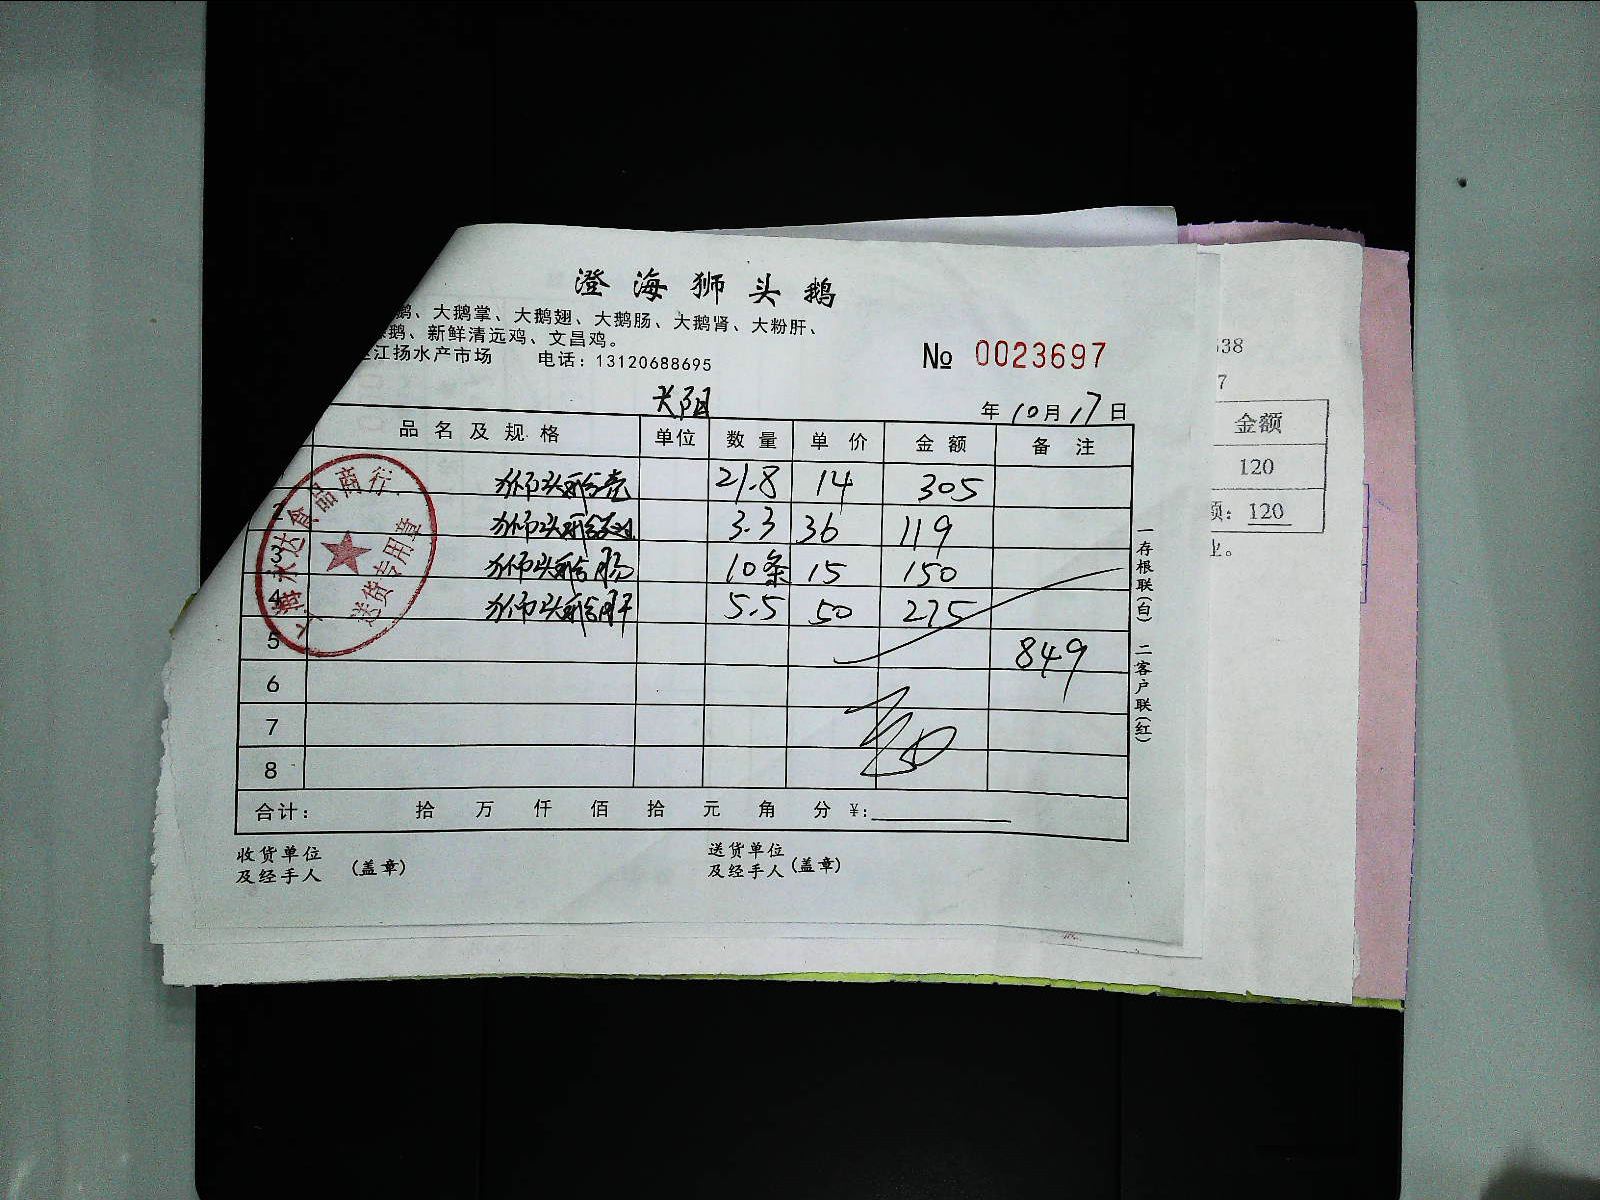 澄海狮头鹅
鹅、大鹅掌、大鹅翅、大鹅肠、大鹅肾、大粉肝、
鹅、新鲜清远鸡、文昌鸡。
江扬水产市场 电话：13120688695
№ 0023697
长阳
年10月17日
品名及规格 单位 数量 单价 金额 备注
狮头鹅壳 21.8 14 305
2 狮头鹅翅 3.3 36 119
3 狮头鹅肠 10条 15 150
4 狮头鹅肝 5.5 50 275
5 849
6
7
8
合计： 拾 万 仟 佰 拾 元 角 分 ¥：
收货单位
及经手人 （盖章）
送货单位
及经手人（盖章）
一存根联（白） 二客户联（红）
上海永达食品商行
送货专用章
538
7
金额
120
额：120
业。